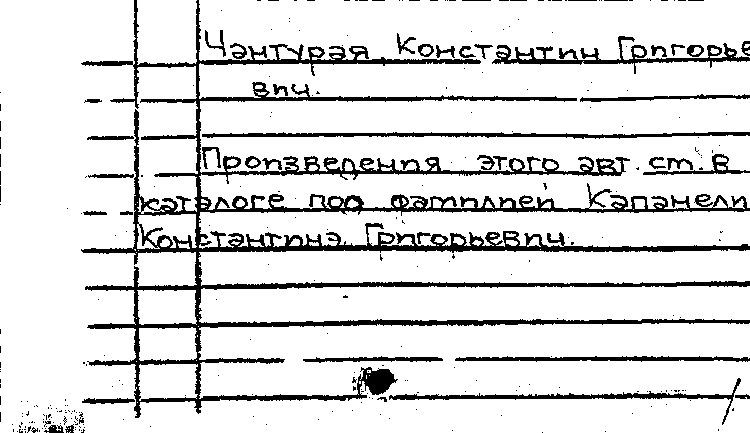 Чантурая, Константин Григорье
вич.
Произведения этого авт. см. в
каталоге под фамилией Капанели
Константина Григорьевич.